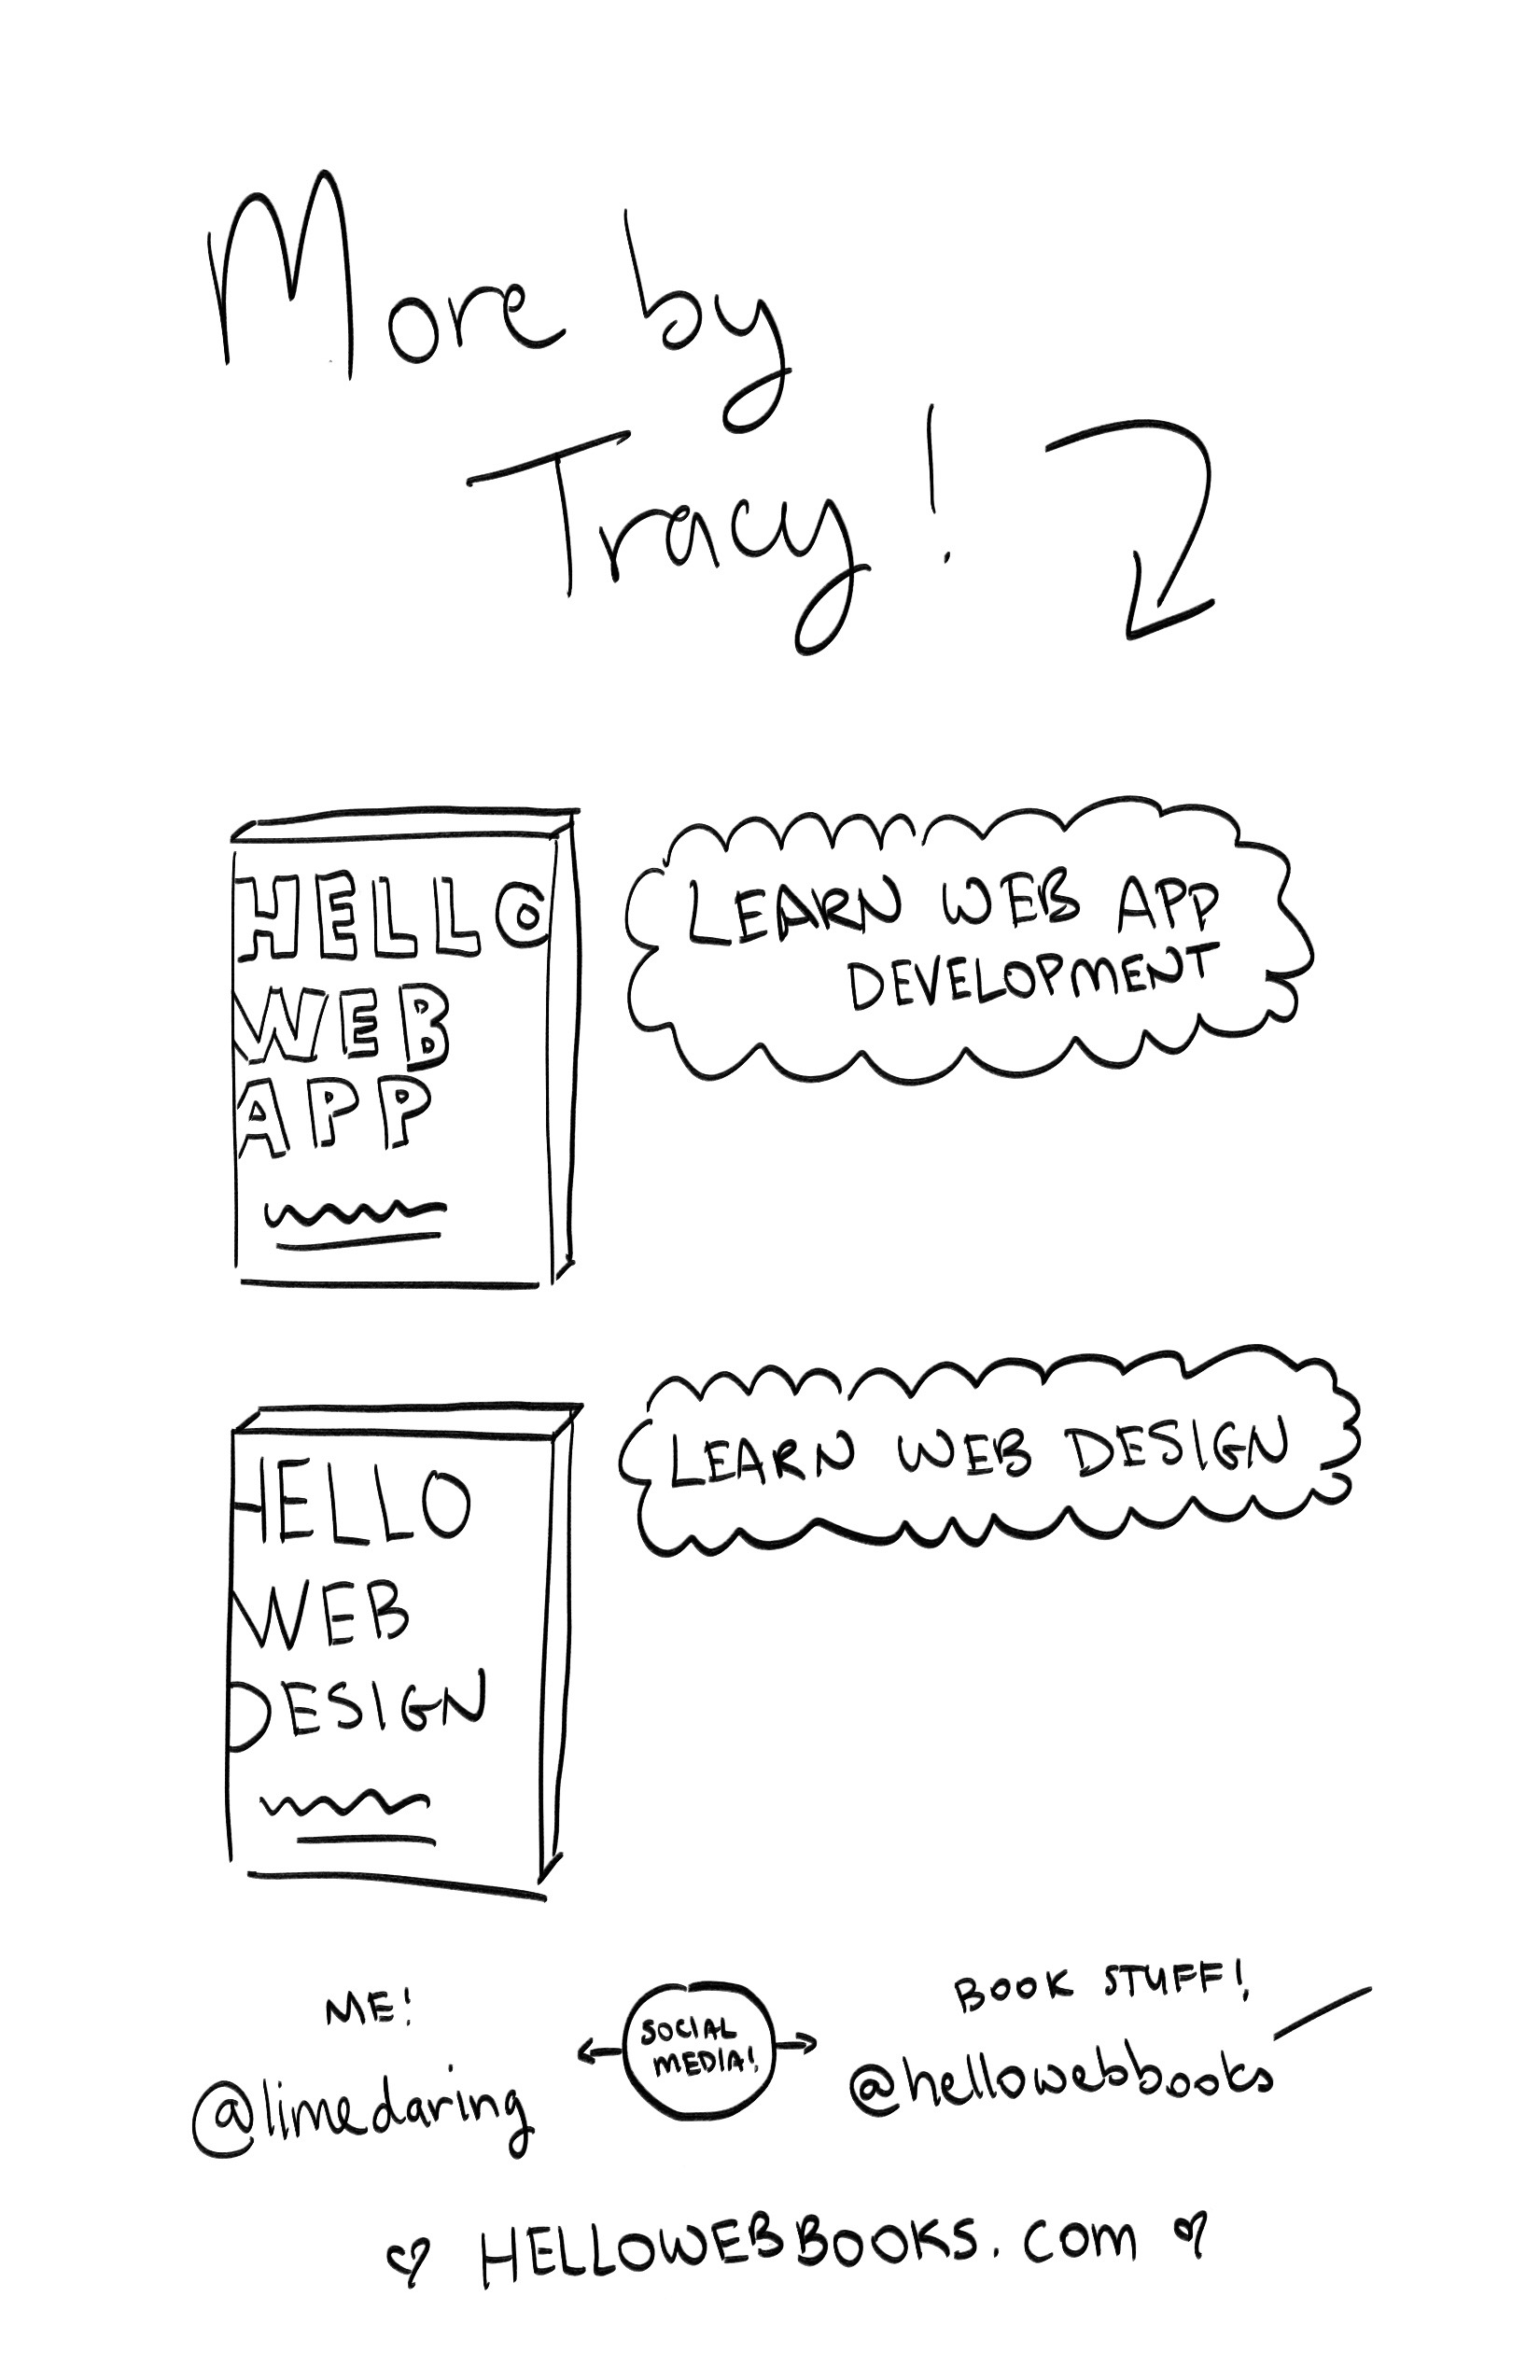 More by
Tracy!
HELLO
WEB
APP
LEARN WEB APP
DEVELOPMENT
HELLO
WEB
DESIGN
LEARN WEB DESIGN
ME!
@limedaring
SOCIAL
MEDIA!
BOOK STUFF!
@hellowebbooks
HELLOWEBBOOKS.COM